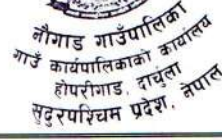 नौगाड गाउँपालिका
गाउँ कार्यपालिकाको कार्यालय
होपरीगाड, दार्चुला
सुदुरपश्चिम प्रदेश, नेपाल